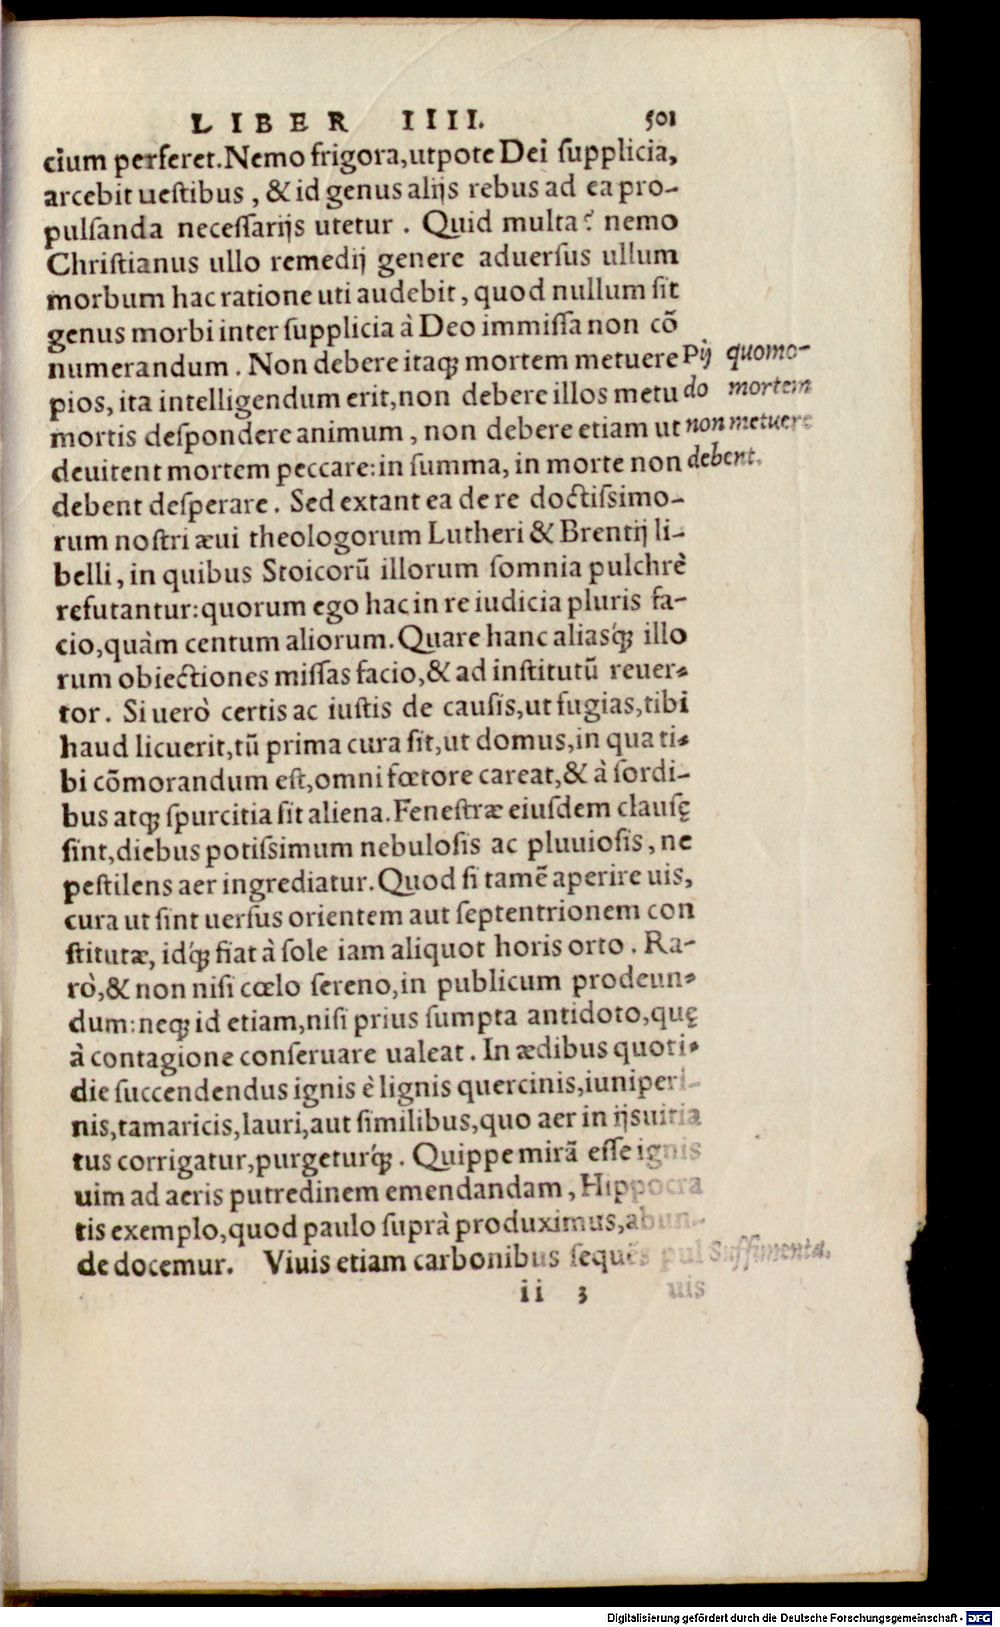 LIBER IIII. 501
cium perferet. Nemo frigora, utpote Dei supplicia,
arcebit uestibus, & id genus alijs rebus ad ea pro-
pulsanda necessarijs utetur. Quid multa? nemo
Christianus ullo remedij genere aduersus ullum
morbum hac ratione uti audebit, quod nullum sit
genus morbi inter supplicia à Deo immissa non cō
numerandum. Non debere itaq; mortem metuere
Pij quomo-
pios, ita intelligendum erit, non debere illos metu
do mortem
mortis despondere animum, non debere etiam ut
non metuere
deuitent mortem peccare: in summa, in morte non
debent.
debent desperare. Sed extant ea de re doctissimo-
rum nostri æui theologorum Lutheri & Brentij li-
belli, in quibus Stoicorū illorum somnia pulchrè
refutantur: quorum ego hac in re iudicia pluris fa-
cio, quàm centum aliorum. Quare hanc aliasq́; illo
rum obiectiones missas facio, & ad institutū reuer-
tor. Si uerò certis ac iustis de causis, ut fugias, tibi
haud licuerit, tū prima cura sit, ut domus, in qua ti-
bi cōmorandum est, omni fœtore careat, & à sordi-
bus atq; spurcitia sit aliena. Fenestræ eiusdem clausę
sint, diebus potissimum nebulosis ac pluuiosis, ne
pestilens aer ingrediatur. Quod si tamē aperire uis,
cura ut sint uersus orientem aut septentrionem con
stitutæ, idq́; fiat à sole iam aliquot horis orto. Ra-
rò, & non nisi cœlo sereno, in publicum prodeun-
dum: neq; id etiam, nisi prius sumpta antidoto, quę
à contagione conseruare ualeat. In ædibus quoti-
die succendendus ignis è lignis quercinis, iuniperi-
nis, tamaricis, lauri, aut similibus, quo aer in ijs uitia
tus corrigatur, purgeturq́;. Quippe mirā esse ignis
uim ad aeris putredinem emendandam, Hippocra
tis exemplo, quod paulo suprà produximus, abun-
de docemur. Viuis etiam carbonibus sequēs pul
Suffimenta.
ii 3 uis
Digitalisierung gefördert durch die Deutsche Forschungsgemeinschaft - DFG